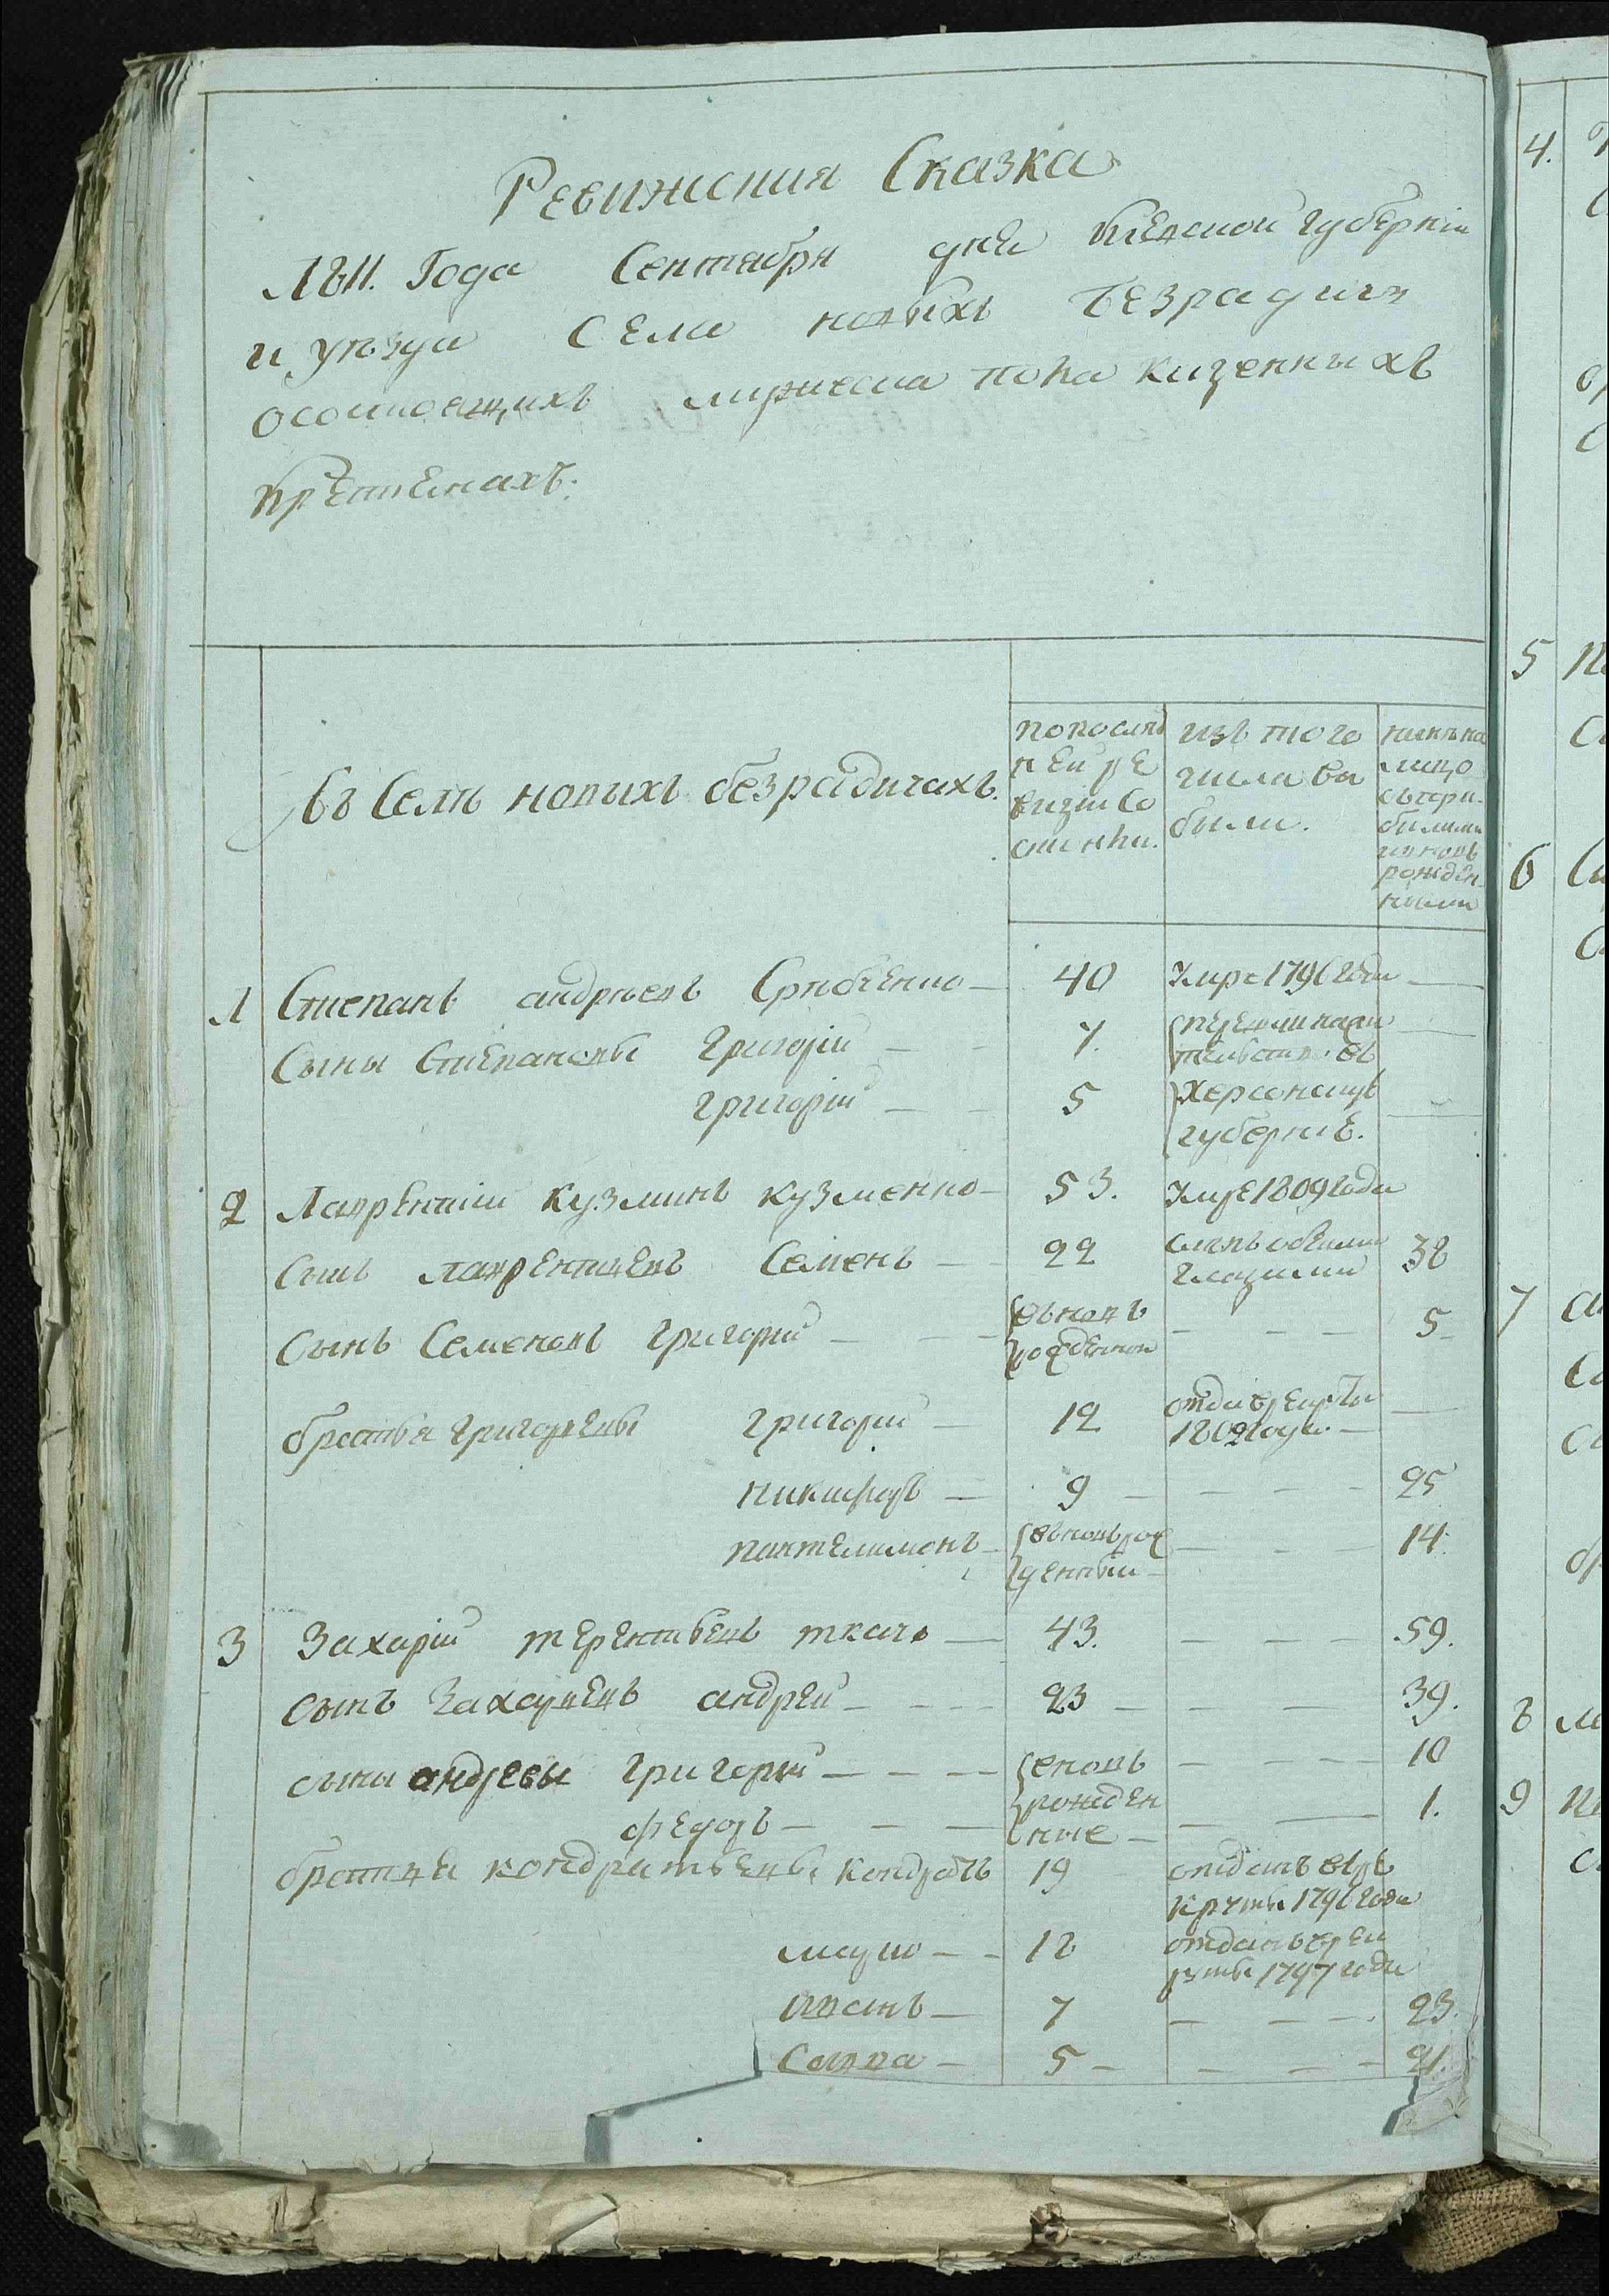 Ревижския Сказка
1811. Года Сентября дня Киевской губернiи
и уѣзда Села новыхъ безрадичъ
осостоящихъ мужеска пола казенныхъ
крестьянахъ:
въ Селѣ новыхъ безрадичахъ.
попослѣд
ней ре
визiи Со
стояли.
изъ того
числа вы
были.
нынѣ на
лицо
съ при
былыми
и вновь
рожден
ными
1 Степанъ андреевъ Срибненко — 40 Умре 1796 года —
Сыны Степановы Григорiй — 7. —
тельство въ
Григорiй — 5 Херсонскую —
губернiе.
2 Лаврентiй Кузминъ кузменко — 53. Умре 1809 года
Сынъ лаврентиевъ Семенъ — 22 слепъ обеими 38
глазами
Сынъ Семеновъ Григорий — вновь — 5
рожденной
братья григориевы григорий — 12 отданъ —
1802 года. —
никифоръ — 9 — 25
пантелимонъ — вновь рож — 14.
денный —
3 Захарiй терентьевъ ткачъ — 43. — 59.
сынъ Захариевъ андрей — 23 — 39.
сыны андреевы григорий — вновь — 10
рожден
федоръ — ные — 1.
братья кондратьевы Кондратъ 19 отданъ въ ре
круты 1796 года
18 отданъ въ рек
руты 1797 года
7 — 23.
Савва — 5 — 21.
4.
5
6
7
8
9